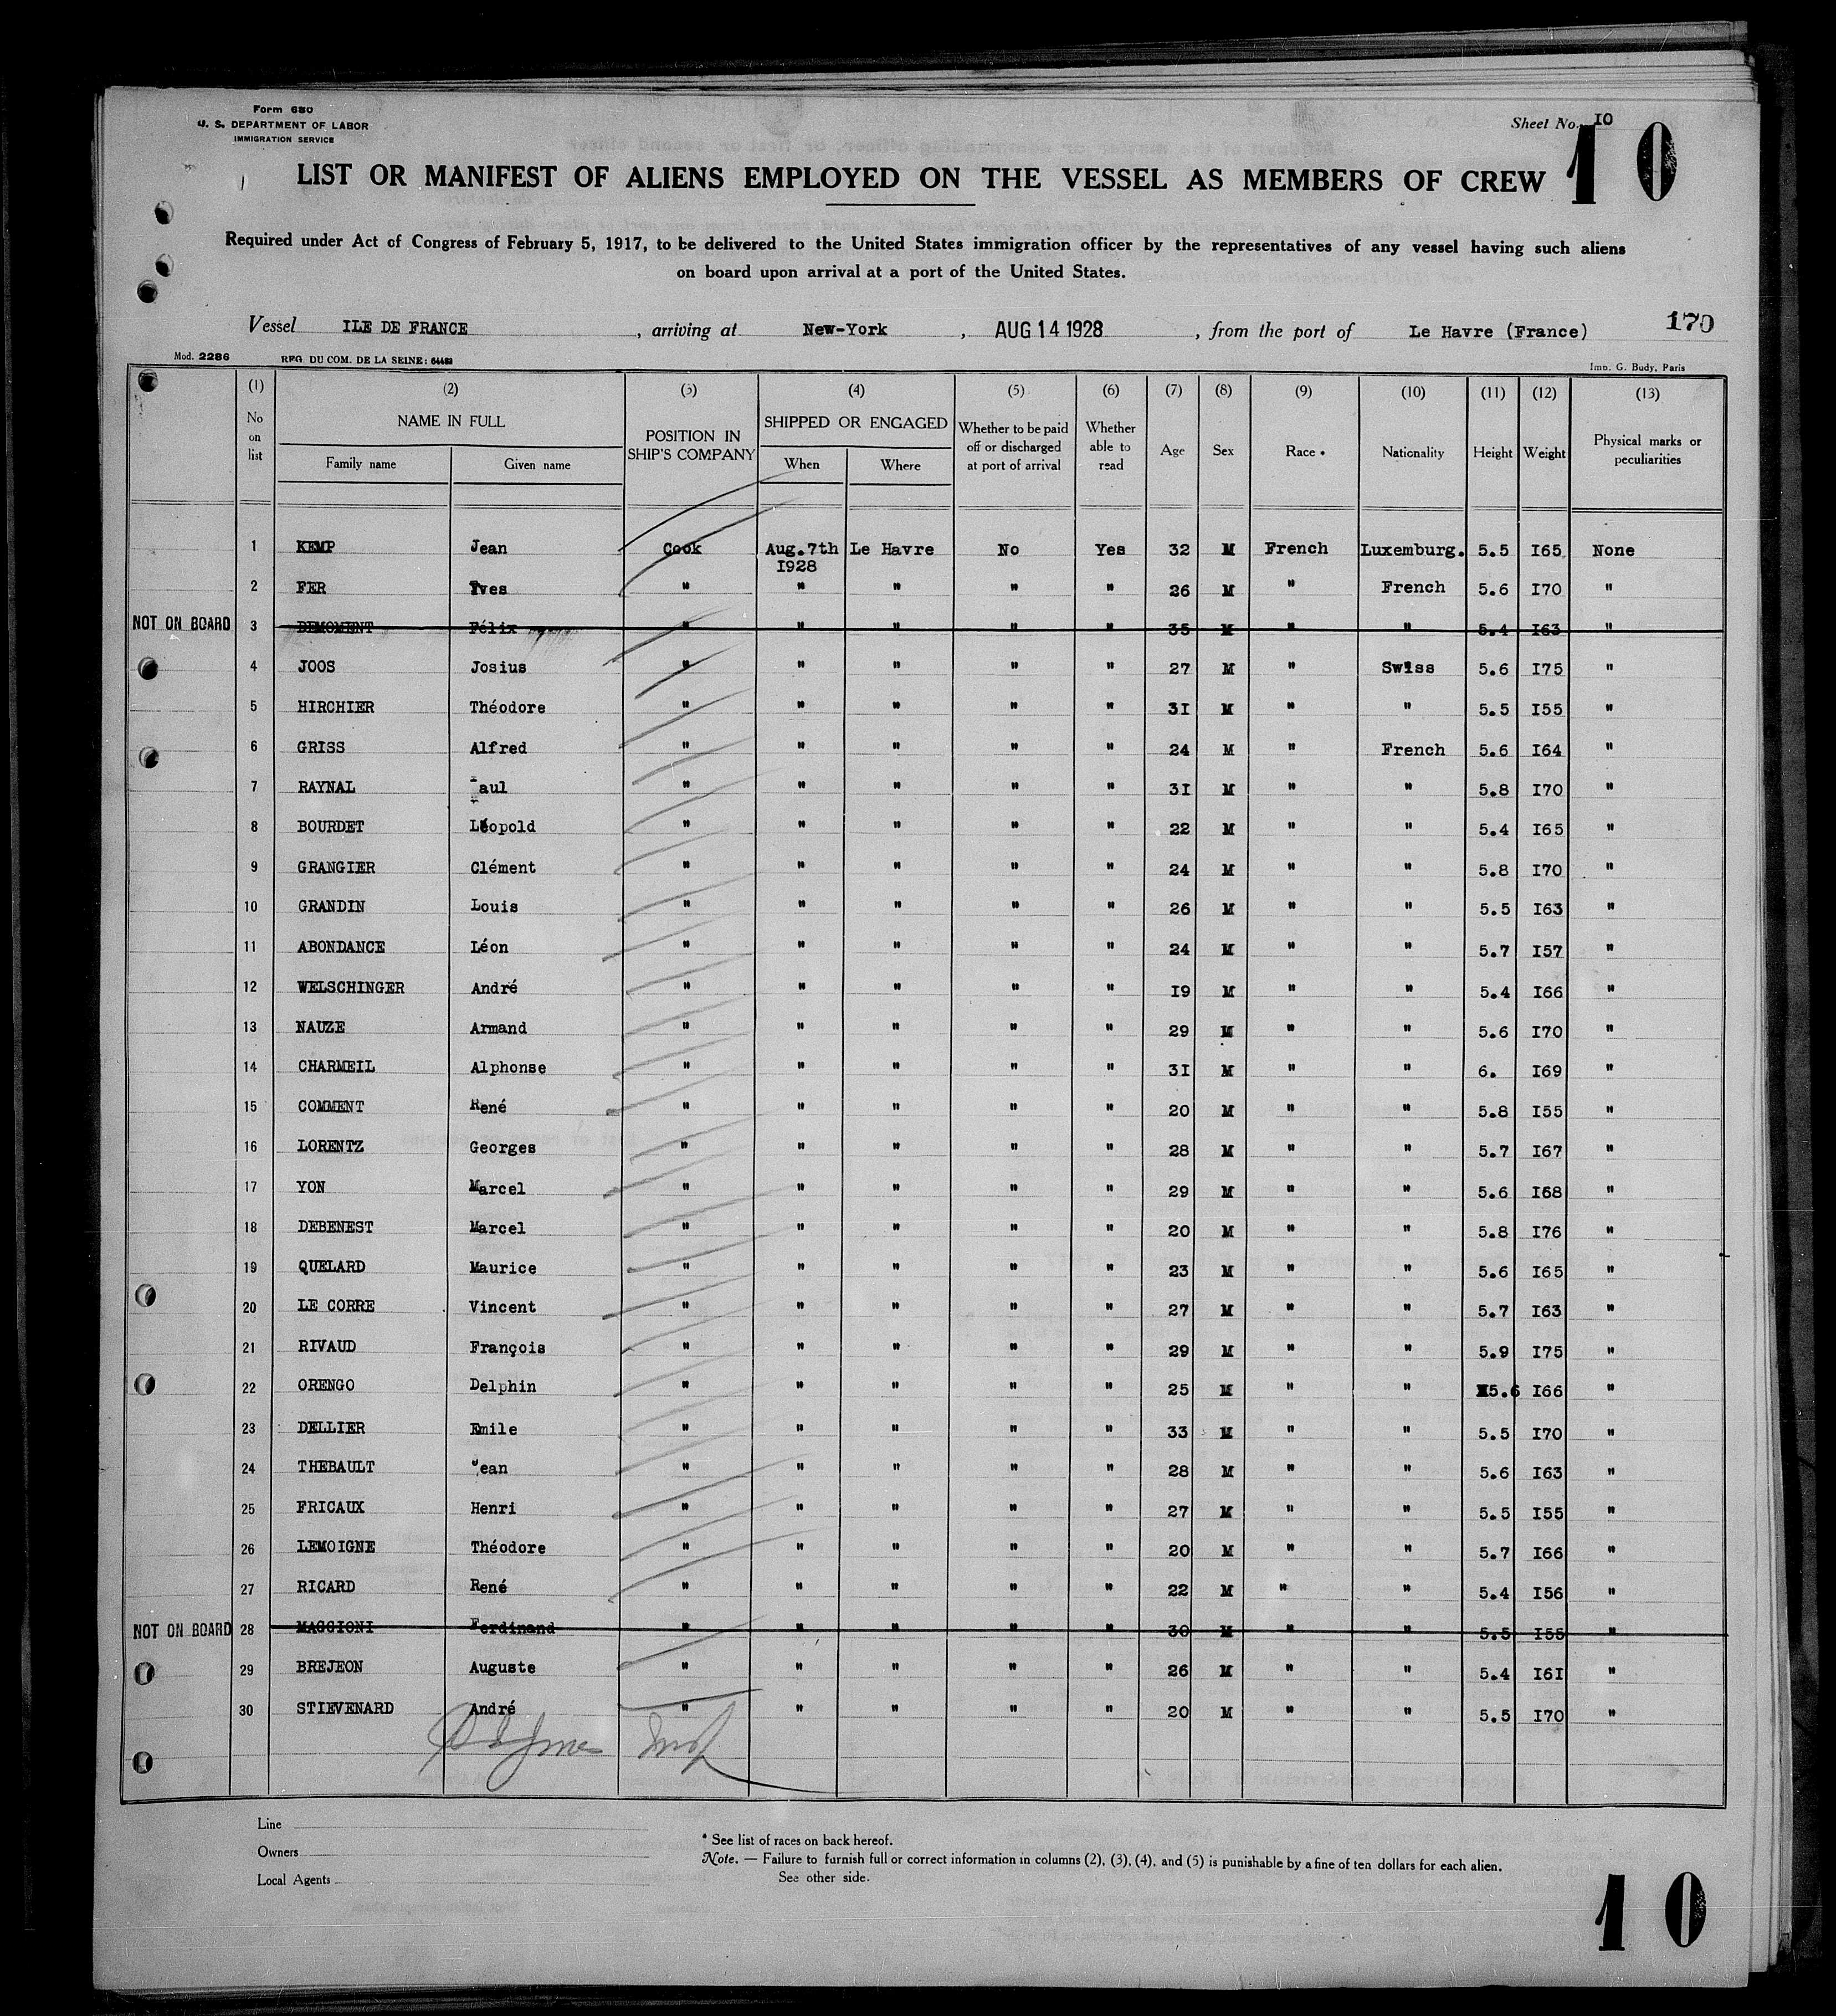 Form 680
U. S. DEPARTMENT OF LABOR
IMMIGRATION SERVICE
Sheet No. I0
10
LIST OR MANIFEST OF ALIENS EMPLOYED ON THE VESSEL AS MEMBERS OF CREW
Required under Act of Congress of February 5, 1917, to be delivered to the United States immigration officer by the representatives of any vessel having such aliens
on board upon arrival at a port of the United States.
Vessel ILE DE FRANCE , arriving at New-York , AUG 14 1928 , from the port of Le Havre (France) 170
Mod. 2286 REG. DU COM. DE LA SEINE: 64483 Imp. G. Budy, Paris
(1) (2) (3) (4) (5) (6) (7) (8) (9) (10) (11) (12) (13)
No on list NAME IN FULL Family name Given name POSITION IN SHIP'S COMPANY SHIPPED OR ENGAGED When Where Whether to be paid off or discharged at port of arrival Whether able to read Age Sex Race * Nationality Height Weight Physical marks or peculiarities
1 KEMP Jean Cook Aug.7th I928 Le Havre No Yes 32 M French Luxemburg. 5.5 I65 None
2 FER Yves " " " " " 26 M " French 5.6 I70 "
NOT ON BOARD 3 DEMOMENT Félix " " " " " 35 M " " 5.4 I63 "
4 JOOS Josius " " " " " 27 M " Swiss 5.6 I75 "
5 HIRCHIER Théodore " " " " " 3I M " " 5.5 I55 "
6 GRISS Alfred " " " " " 24 M " French 5.6 I64 "
7 RAYNAL Paul " " " " " 3I M " " 5.8 I70 "
8 BOURDET Léopold " " " " " 22 M " " 5.4 I65 "
9 GRANGIER Clément " " " " " 24 M " " 5.8 I70 "
10 GRANDIN Louis " " " " " 26 M " " 5.5 I63 "
11 ABONDANCE Léon " " " " " 24 M " " 5.7 I57 "
12 WELSCHINGER André " " " " " I9 M " " 5.4 I66 "
13 NAUZE Armand " " " " " 29 M " " 5.6 I70 "
14 CHARMEIL Alphonse " " " " " 3I M " " 6. I69 "
15 COMMENT René " " " " " 20 M " " 5.8 I55 "
16 LORENTZ Georges " " " " " 28 M " " 5.7 I67 "
17 YON Marcel " " " " " 29 M " " 5.6 I68 "
18 DEBENEST Marcel " " " " " 20 M " " 5.8 I76 "
19 QUELARD Maurice " " " " " 23 M " " 5.6 I65 "
20 LE CORRE Vincent " " " " " 27 M " " 5.7 I63 "
21 RIVAUD François " " " " " 29 M " " 5.9 I75 "
22 ORENGO Delphin " " " " " 25 M " " 5.6 I66 "
23 DELLIER Emile " " " " " 33 M " " 5.5 I70 "
24 THEBAULT Jean " " " " " 28 M " " 5.6 I63 "
25 FRICAUX Henri " " " " " 27 M " " 5.5 I55 "
26 LEMOIGNE Théodore " " " " " 20 M " " 5.7 I66 "
27 RICARD René " " " " " 22 M " " 5.4 I56 "
NOT ON BOARD 28 MAGGIONI Ferdinand " " " " " 30 M " " 5.5 I55 "
29 BREJEON Auguste " " " " " 26 M " " 5.4 I6I "
30 STIEVENARD André " " " " " 20 M " " 5.5 I70 "
Line
Owners
Local Agents
* See list of races on back hereof.
Note. — Failure to furnish full or correct information in columns (2), (3), (4), and (5) is punishable by a fine of ten dollars for each alien.
See other side.
10